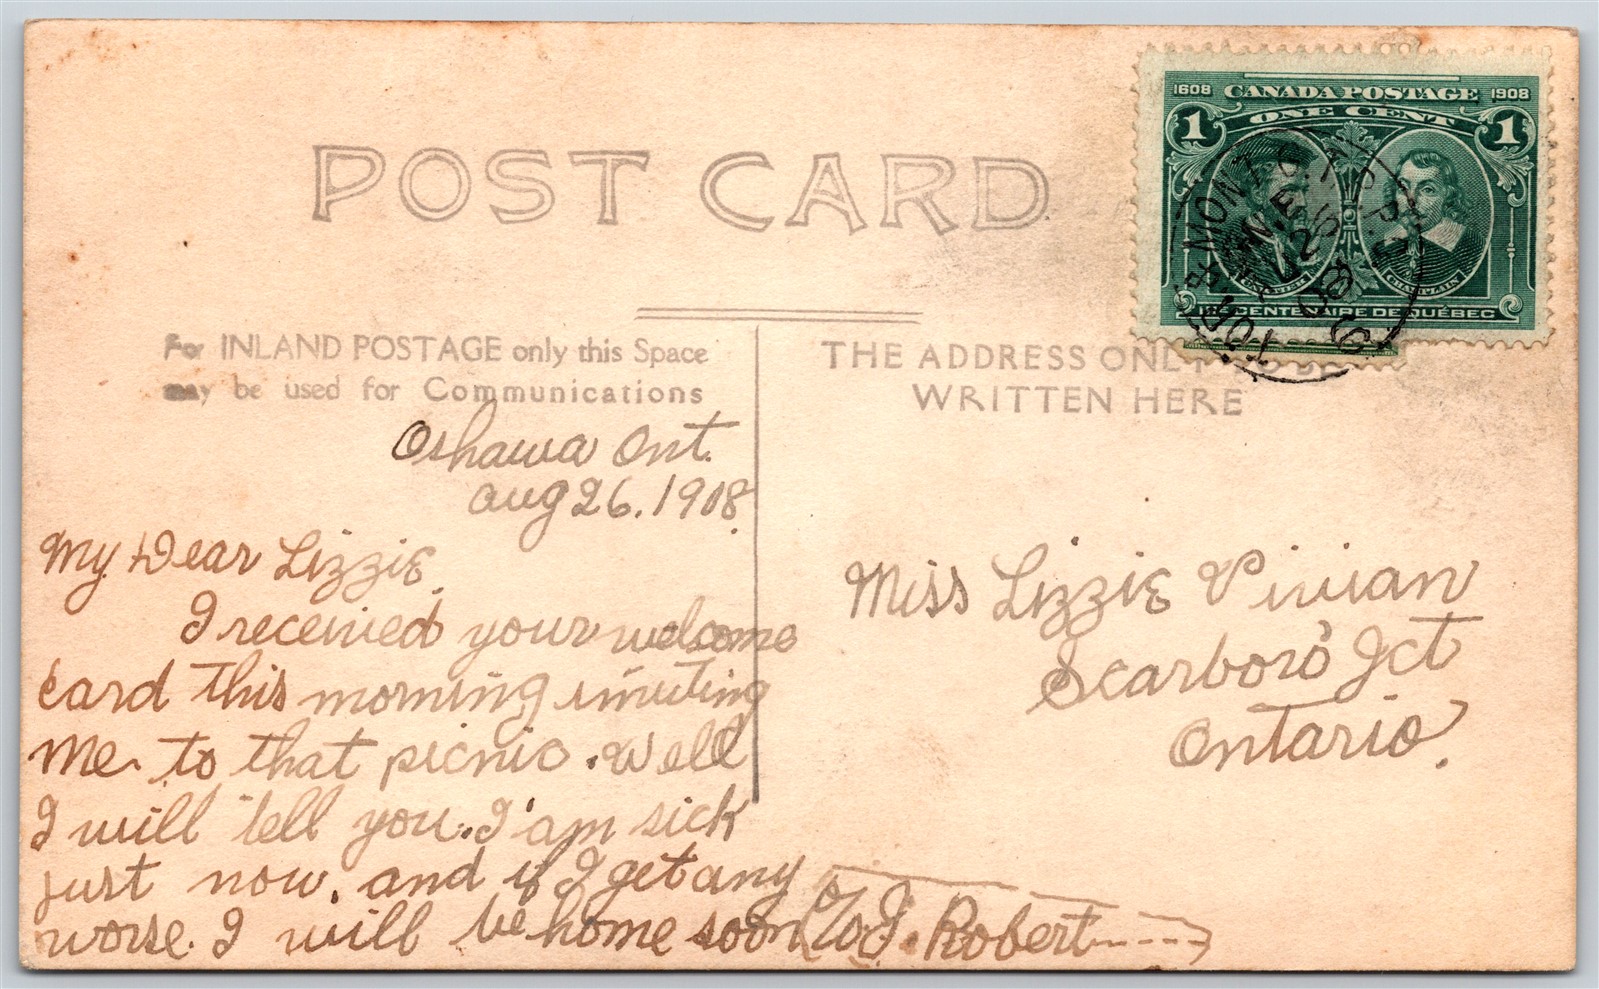 POST CARD
1608 CANADA POSTAGE 1908
1 ONE CENT 1
CHAMPLAIN
CENTENAIRE DE QUÉBEC
MONT
08
For INLAND POSTAGE only this Space
may be used for Communications
THE ADDRESS ONLY
WRITTEN HERE
Oshawa Ont.
Aug 26, 1908.
My Dear Lizzie
I received your welcome
card this morning inviting
me to that picnic. Well
I will tell you. I am sick
just now, and if I get any
worse I will be home soon
J. Robert
Miss Lizzie Vivian
Scarboro' Jct
Ontario.